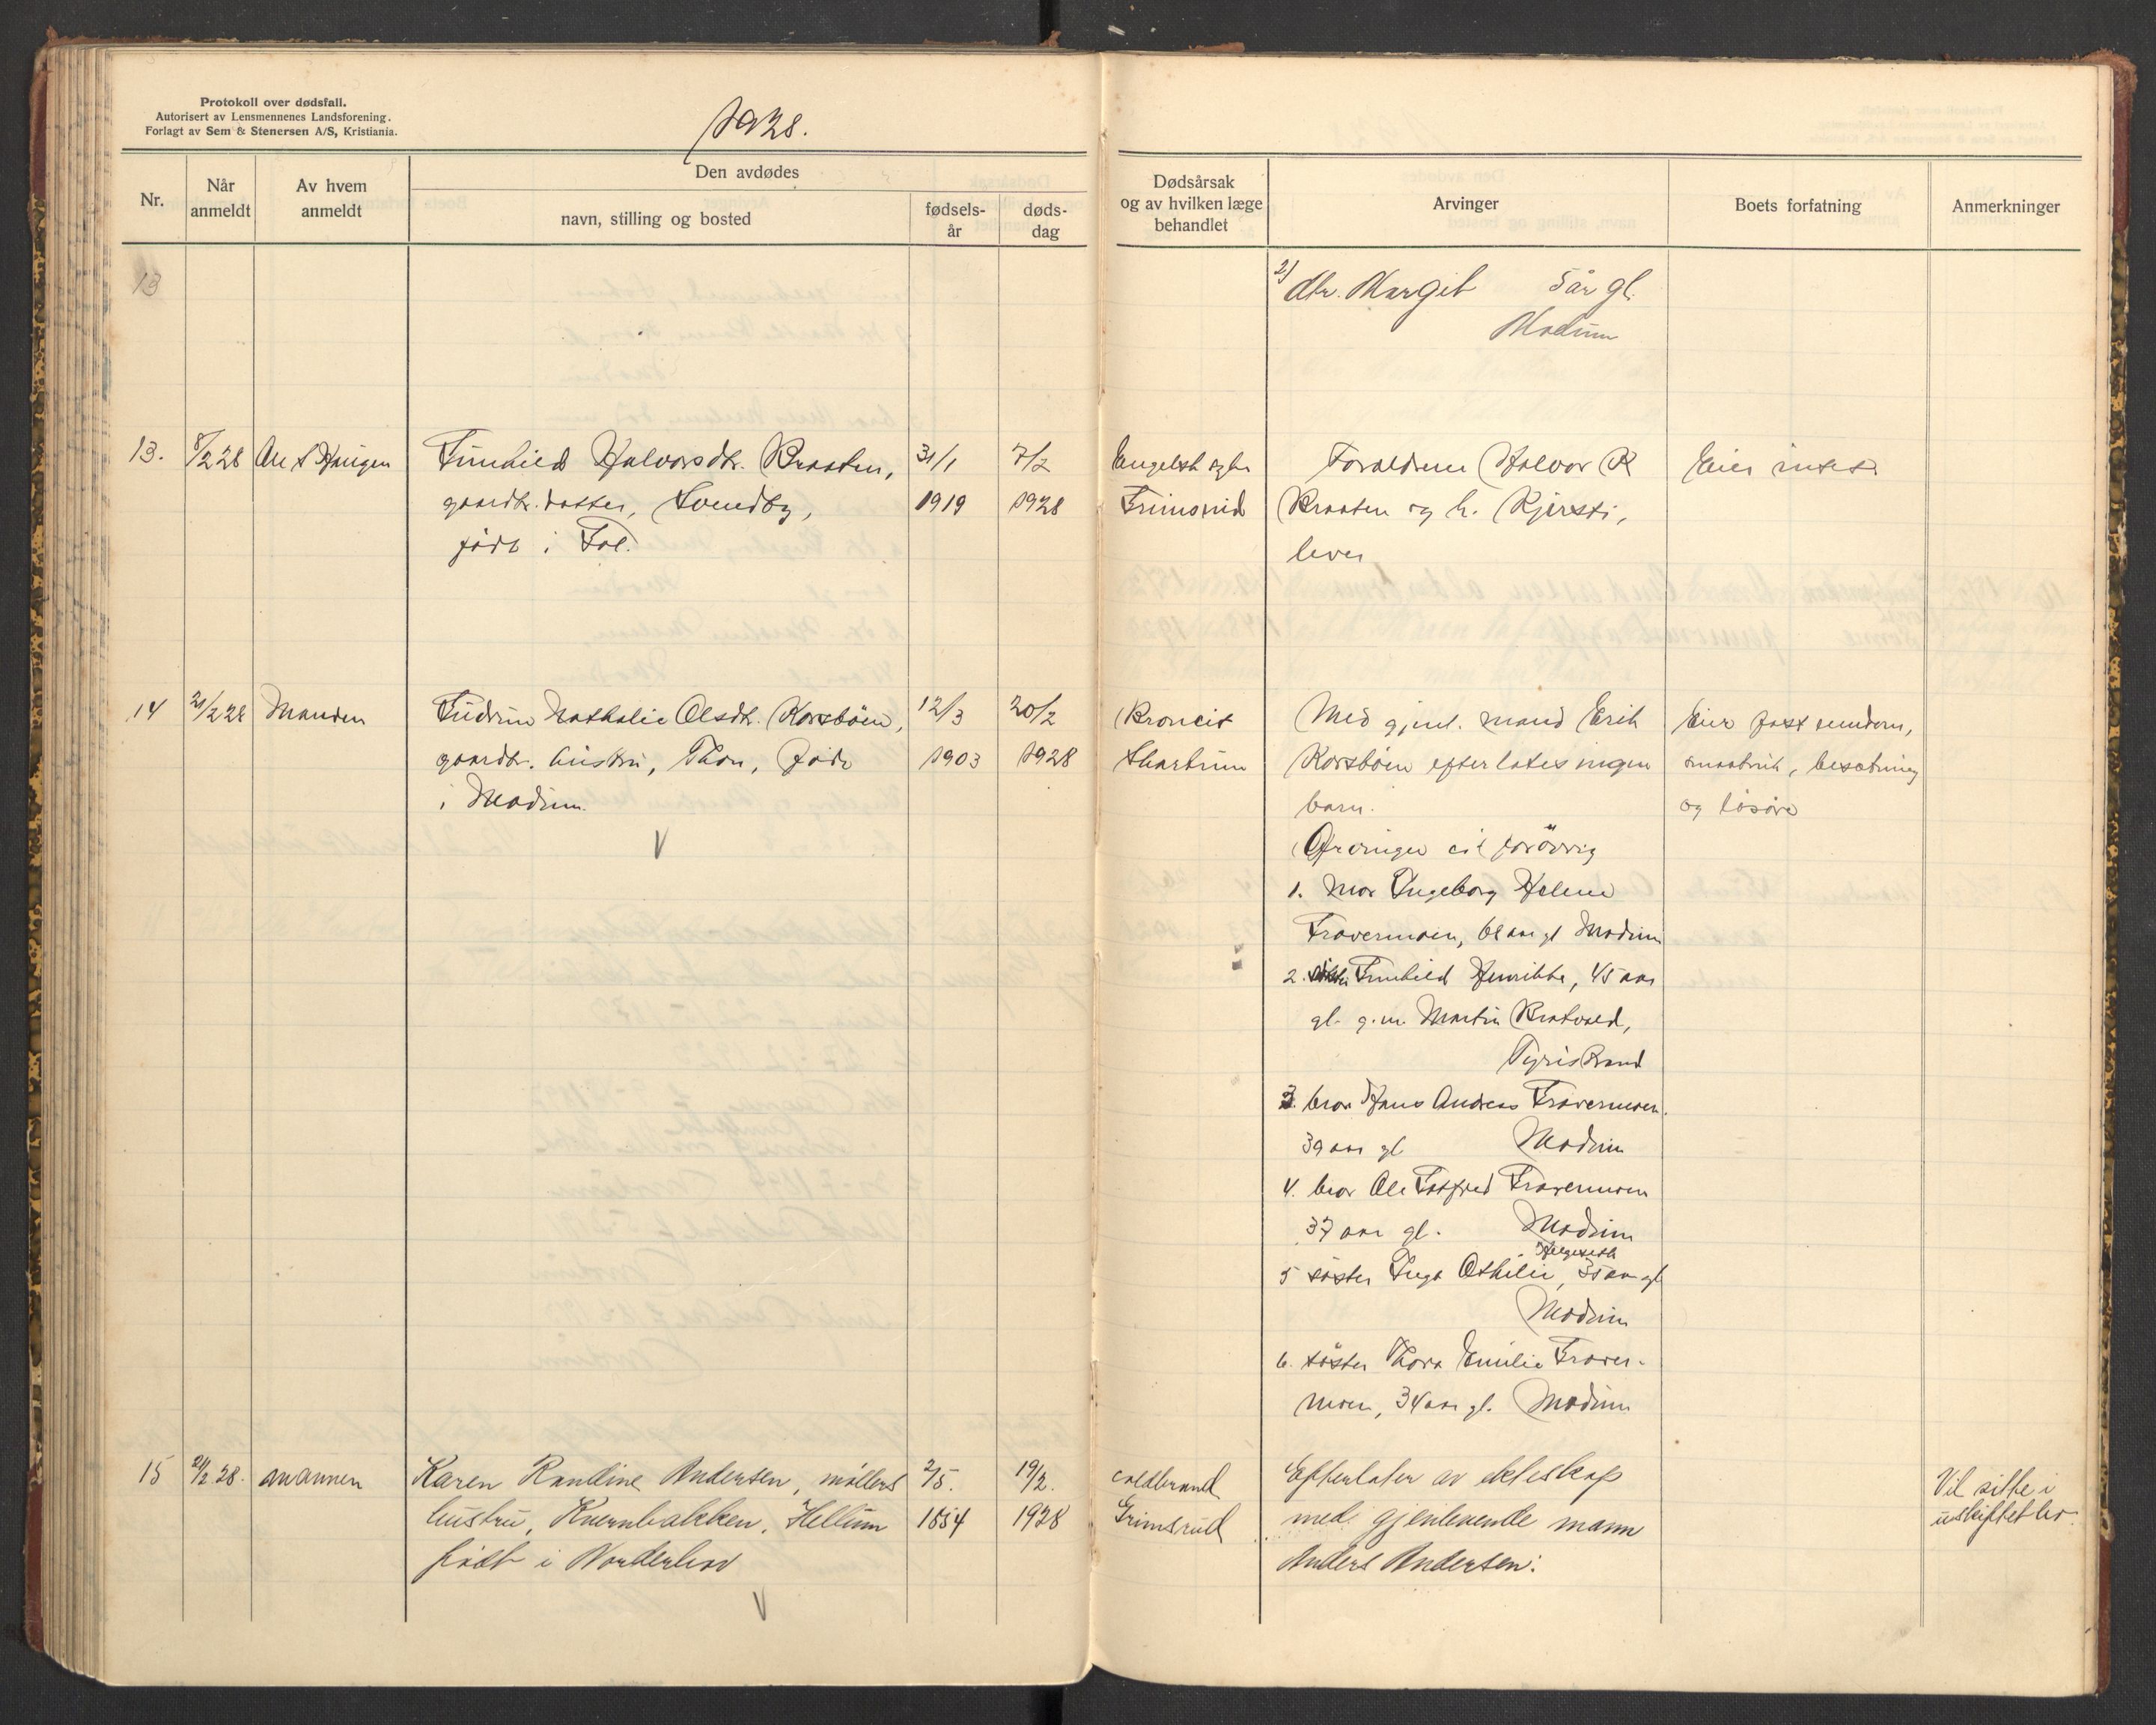 Protokoll over dødsfall.
Autorisert av Lensmennenes Landsforening.
Forlagt av Sem & Stenersen A/S, Kristiania.
1928.
Nr.
Når anmeldt
Av hvem anmeldt
Den avdødes
navn, stilling og bosted
fødsels-år
døds-dag
Dødsårsak og av hvilken læge behandlet
Arvinger
Boets forfatning
Anmerkninger
13
2) dtr. Margit 5 år gl.
Modum
13. 8/2 28
Gunhild Halvorsdtr. Braaten,
gaardbr. datter,
født i
31/1
1919
7/2
1928
Engelsk syke
Grimsrud
Forældrene Halvor K
Braaten og h. Kjersti,
lever
Eier intet
14 21/2 28 Manden
Gudrun Nathalie Olsdtr. Korsbøen,
gaardbr. hustru, Thon, født
i Modum.
V
12/3
1903
20/2
1928
Broncit
Skartum
Med gjenl. mand Erik
Korsbøen efterlates ingen
barn.
Arvinger er forøvrig
1. Mor Ingeborg Helene
Gravermoen, aar gl Modum
2. Gunhild Henrikke, 45 aar
gl. g.m. Martin
Tyristrand
3. bror Hans Andreas Gravermoen.
39 aar gl Modum
4. bror Ole Gotfred Gravermoen
37 aar gl. Modum
Helgeseth
5 søster Inga Othilie, 35 aar gl
Modum
6. søster Thora Emilie Graver-
moen, 34 aar gl. Modum
Eier fast eiendom,
smaabruk, besætning
og løsøre
15 21/2 28. mannen
Karen Randine Andersen, møllers
hustru, Kvernbakken, Hellum
født i Norderhov
V
2/5.
1854
19/2.
1928
coldbrand
Grimsrud
Efterlater av ekteskap
med gjenlevende mann
Anders Andersen:
Vil sitte i
uskiftet bo.